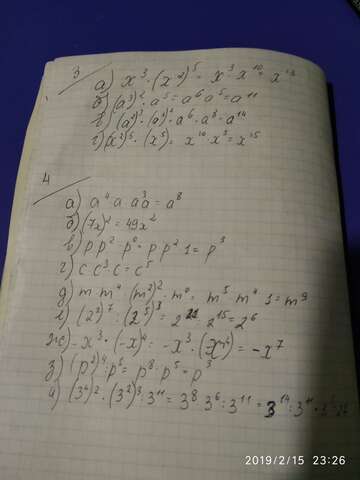 3
а) x³·(x²)⁵ = x³·x¹⁰ = x¹³
б) (a³)²·a⁵ = a⁶ a⁵ = a¹¹
в) (a²)³·(a⁴)²= a⁶·a⁸ = a¹⁴
г) (x²)⁵·(x⁵) = x¹⁰·x⁵ = x¹⁵
4
а) a⁴ a a³a = a⁸
б) (7x)² = 49x²
в) p p²·p⁰ = p p² 1 = p³
г) c c³ c = c⁵
д) m·m⁴ (m²)²·m⁰ = m⁵ m⁴ 1 = m⁹
е) (2³)⁷ : (2⁵)³ = 2²¹ : 2¹⁵ = 2⁶
ж) -x³·(-x)⁴ = -x³·(x⁴) = -x⁷
з) (p²)⁴ : p⁵ = p⁸ : p⁵ = p³
и) (3⁴)²·(3²)³ : 3¹¹ = 3⁸·3⁶ : 3¹¹ = 3¹⁴ : 3¹¹ = 3³
2019/2/15 23:26